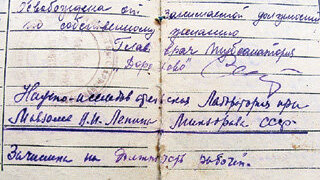 Освобождена от занимаемой должности
по собственному желанию
Глав. врач Тубсанатория
"Дорохово"
Научно-исследовательская Лаборатория при
Мавзолее В.И. Ленина Минздрава СССР
Зачислена на должность рабочей.